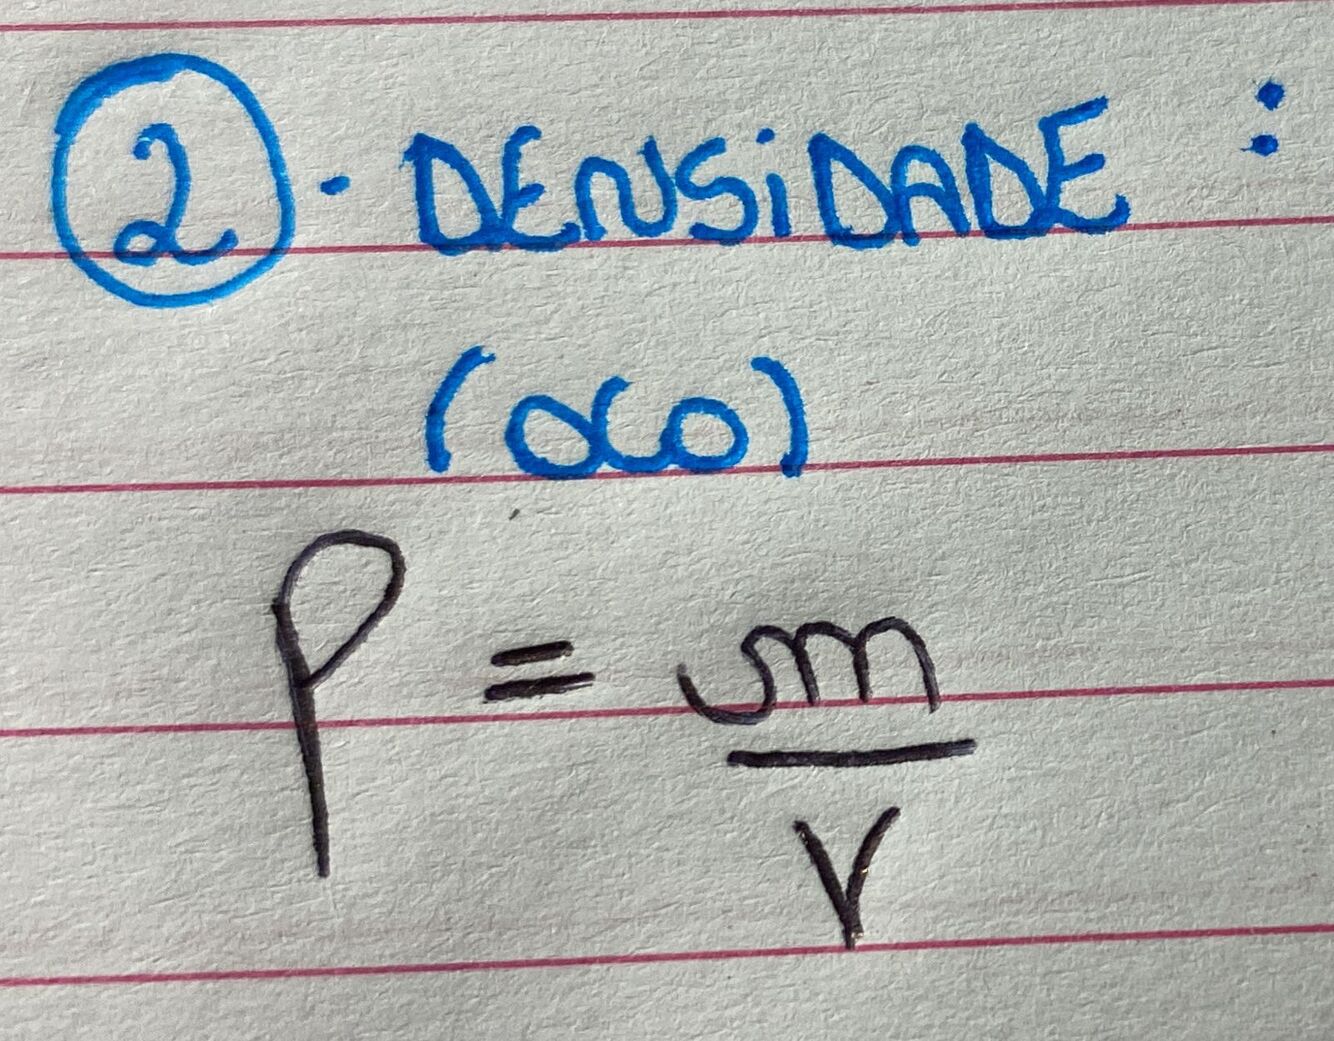 2 - DENSiDADE :
(oco)
ρ = m
V